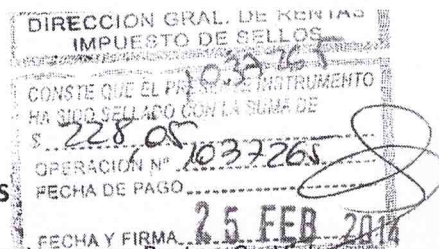 DIRECCION GRAL. DE RENTAS
IMPUESTO DE SELLOS
1037265
CONSTE QUE EL PRESENTE INSTRUMENTO
HA SIDO SELLADO CON LA SUMA DE
$ 228,05
OPERACION Nº 1037265
FECHA DE PAGO
FECHA Y FIRMA 25 FEB